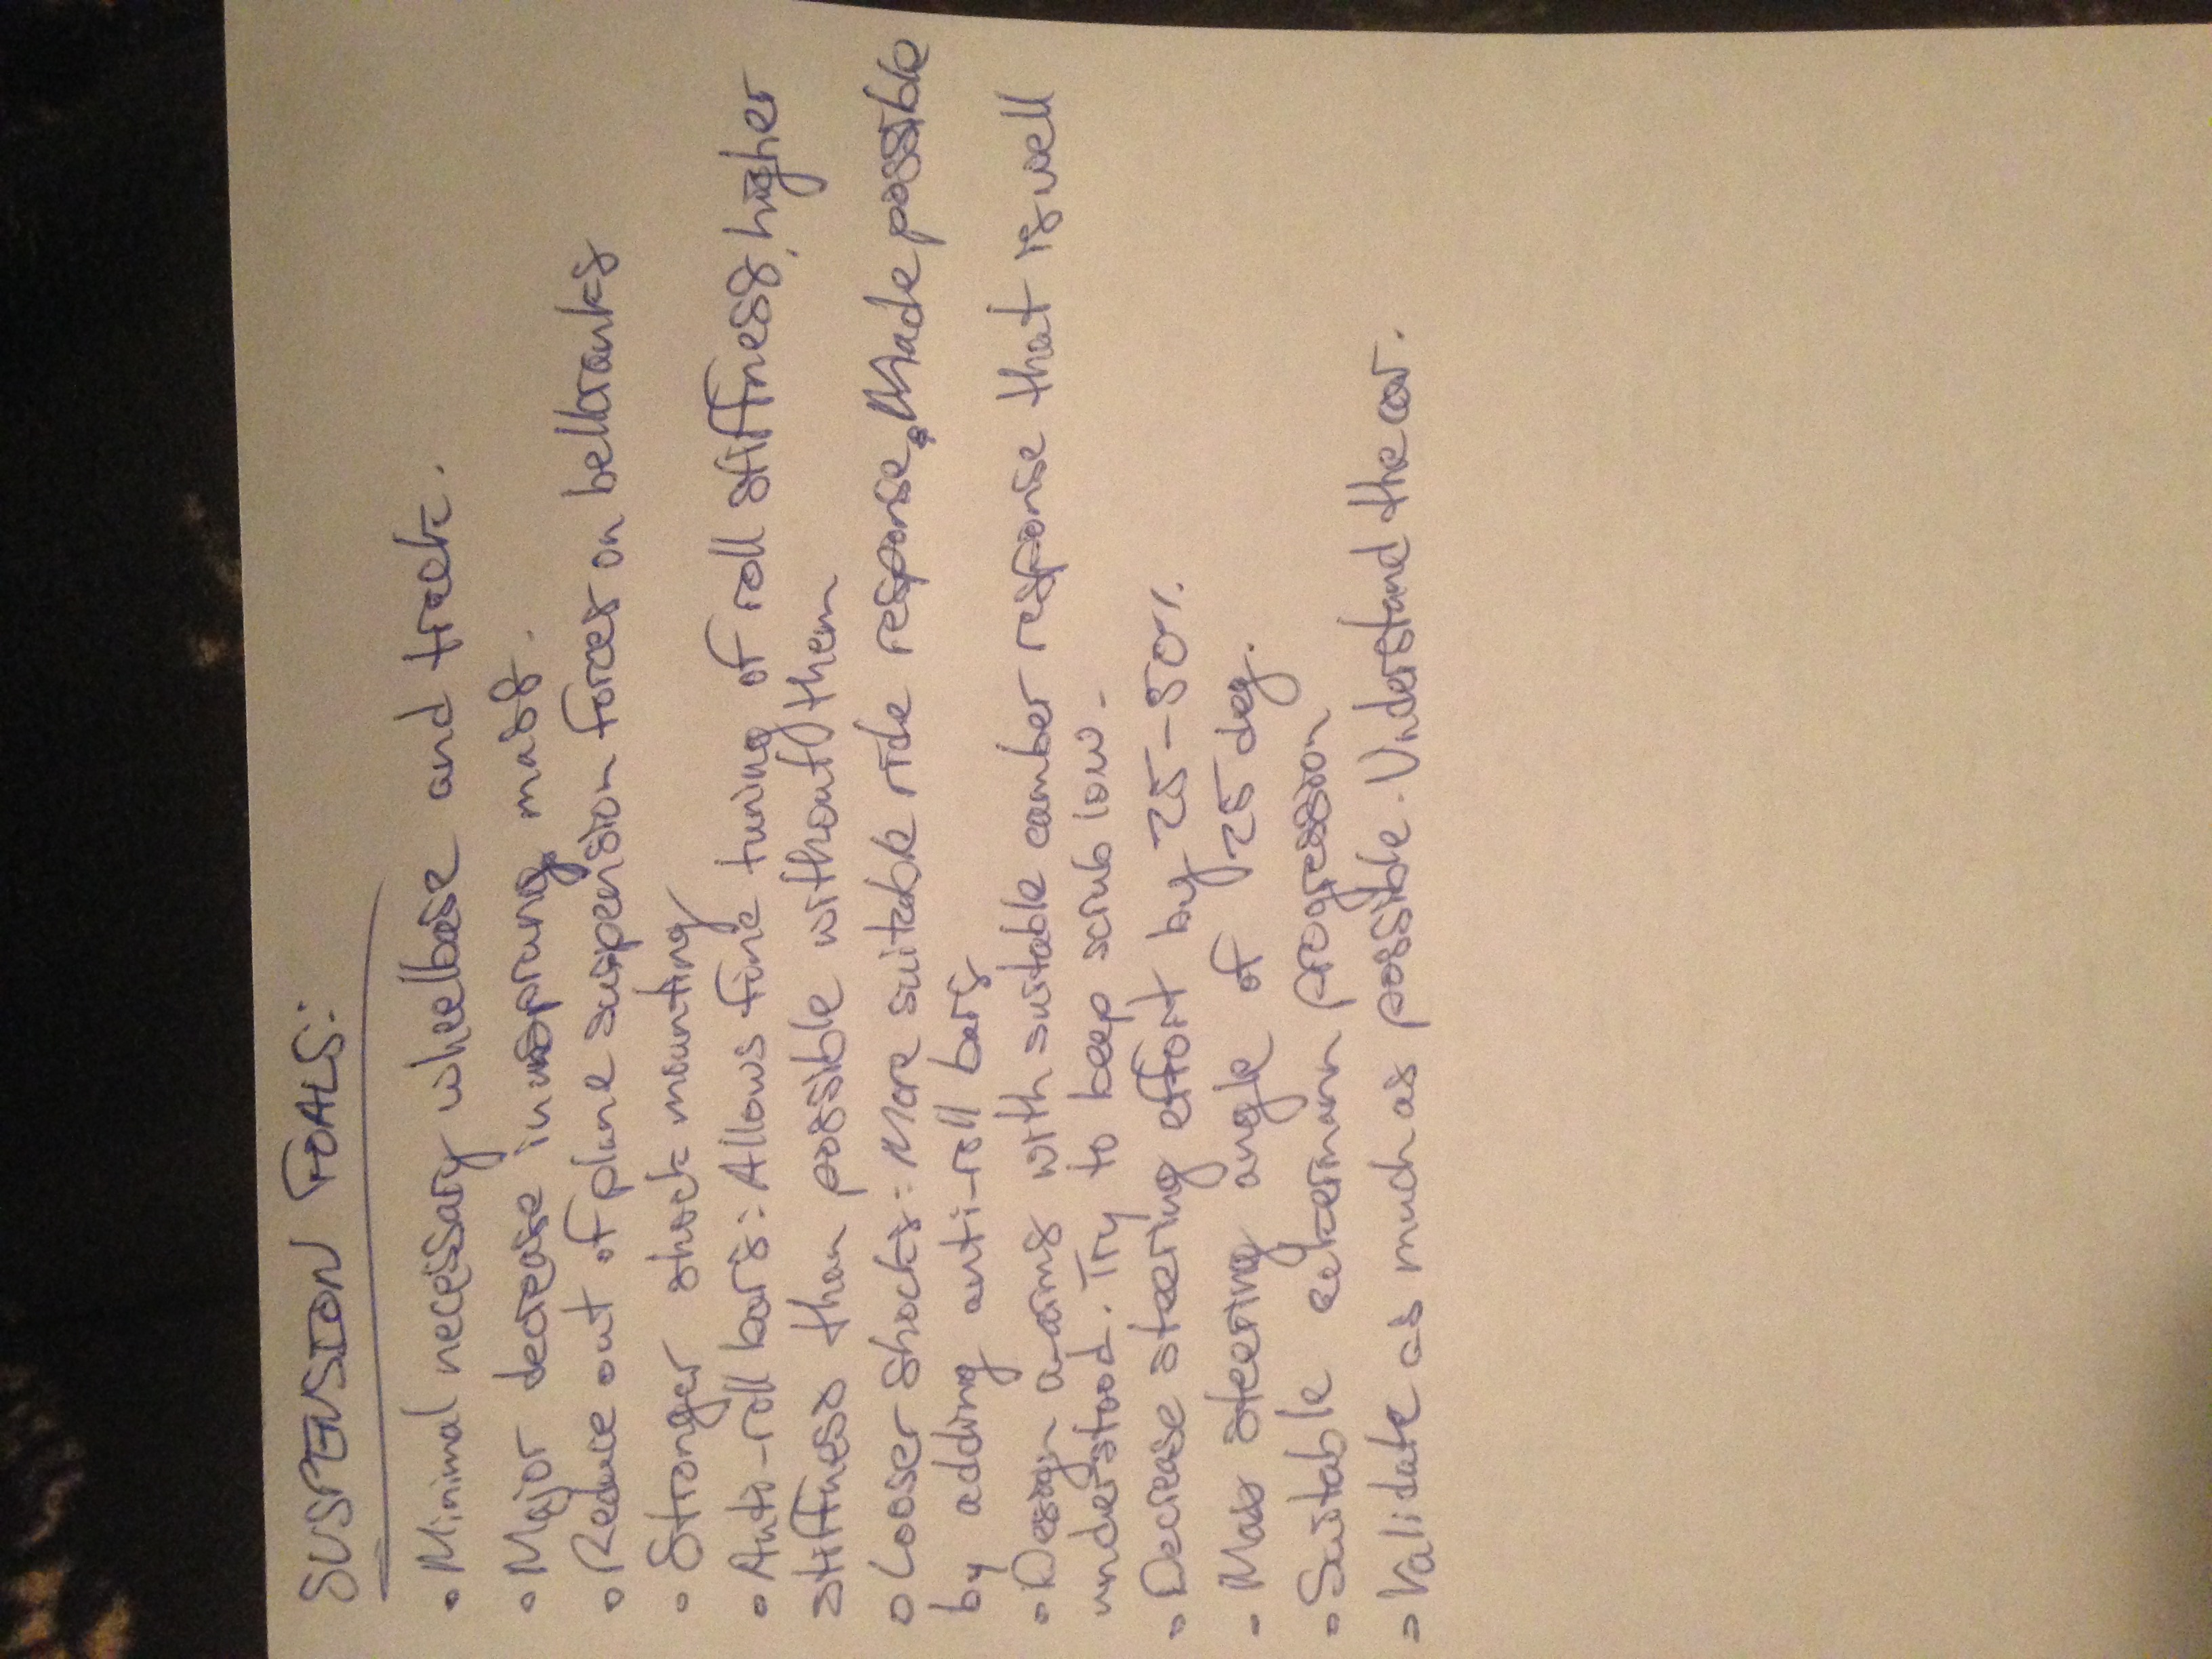 SUSPENSION GOALS:
• Minimal necessary wheelbase and track.
• Major decrease in unsprung mass.
• Reduce out of plane suspension forces on bellcranks
• Stronger shock mounting
• Anti-roll bars: Allows fine tuning of roll stiffness, higher
stiffness than possible without them
• Looser shocks: More suitable ride response. Made possible
by adding anti-roll bars
• Design a-arms with suitable camber response that is well
understood. Try to keep scrub low.
• Decrease steering effort by 25-50%
- Max steering angle of 25 deg.
• Suitable ackermann progression
• Validate as much as possible. Understand the car.